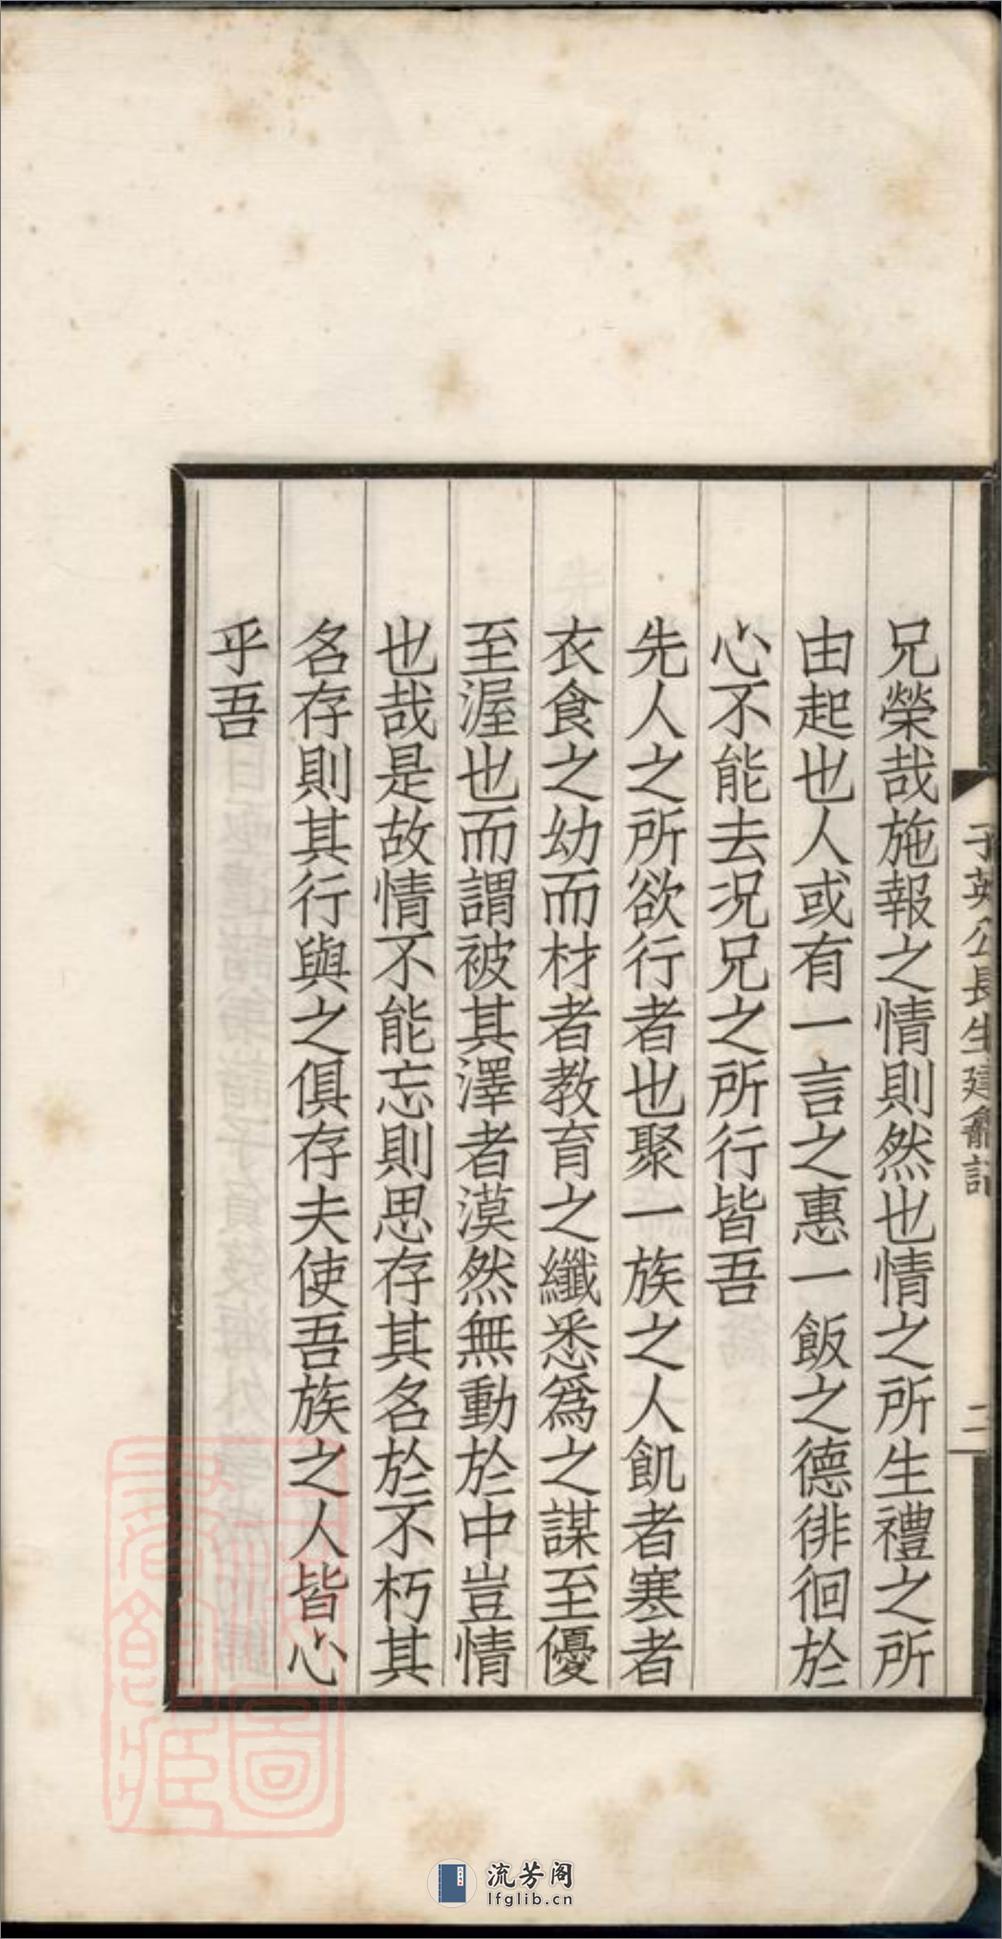 兄榮哉施報之情則然也情之所生禮之所
由起也人或有一言之惠一飯之德徘徊於
心不能去况兄之所行皆吾
先人之所欲行者也聚一族之人飢者寒者
衣食之幼而材者教育之纖悉爲之謀至優
至渥也而謂被其澤者漠然無動於中豈情
也哉是故情不能忘則思存其名於不朽其
名存則其行與之俱存夫使吾族之人皆心
乎吾
子英公長生建龕記
二
流芳阁
lfglib.cn